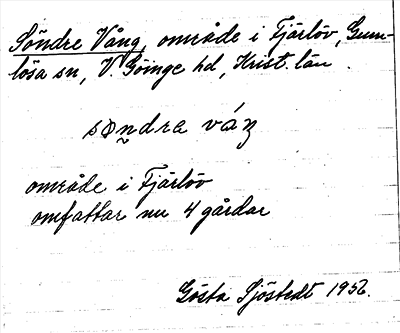 Söndre Vång, område i Fjärlöv, Gum-
lösa sn, V. Göinge hd, Krist. län.
område i Fjärlöv
omfattar nu 4 gårdar
Gösta Sjöstedt 1956.